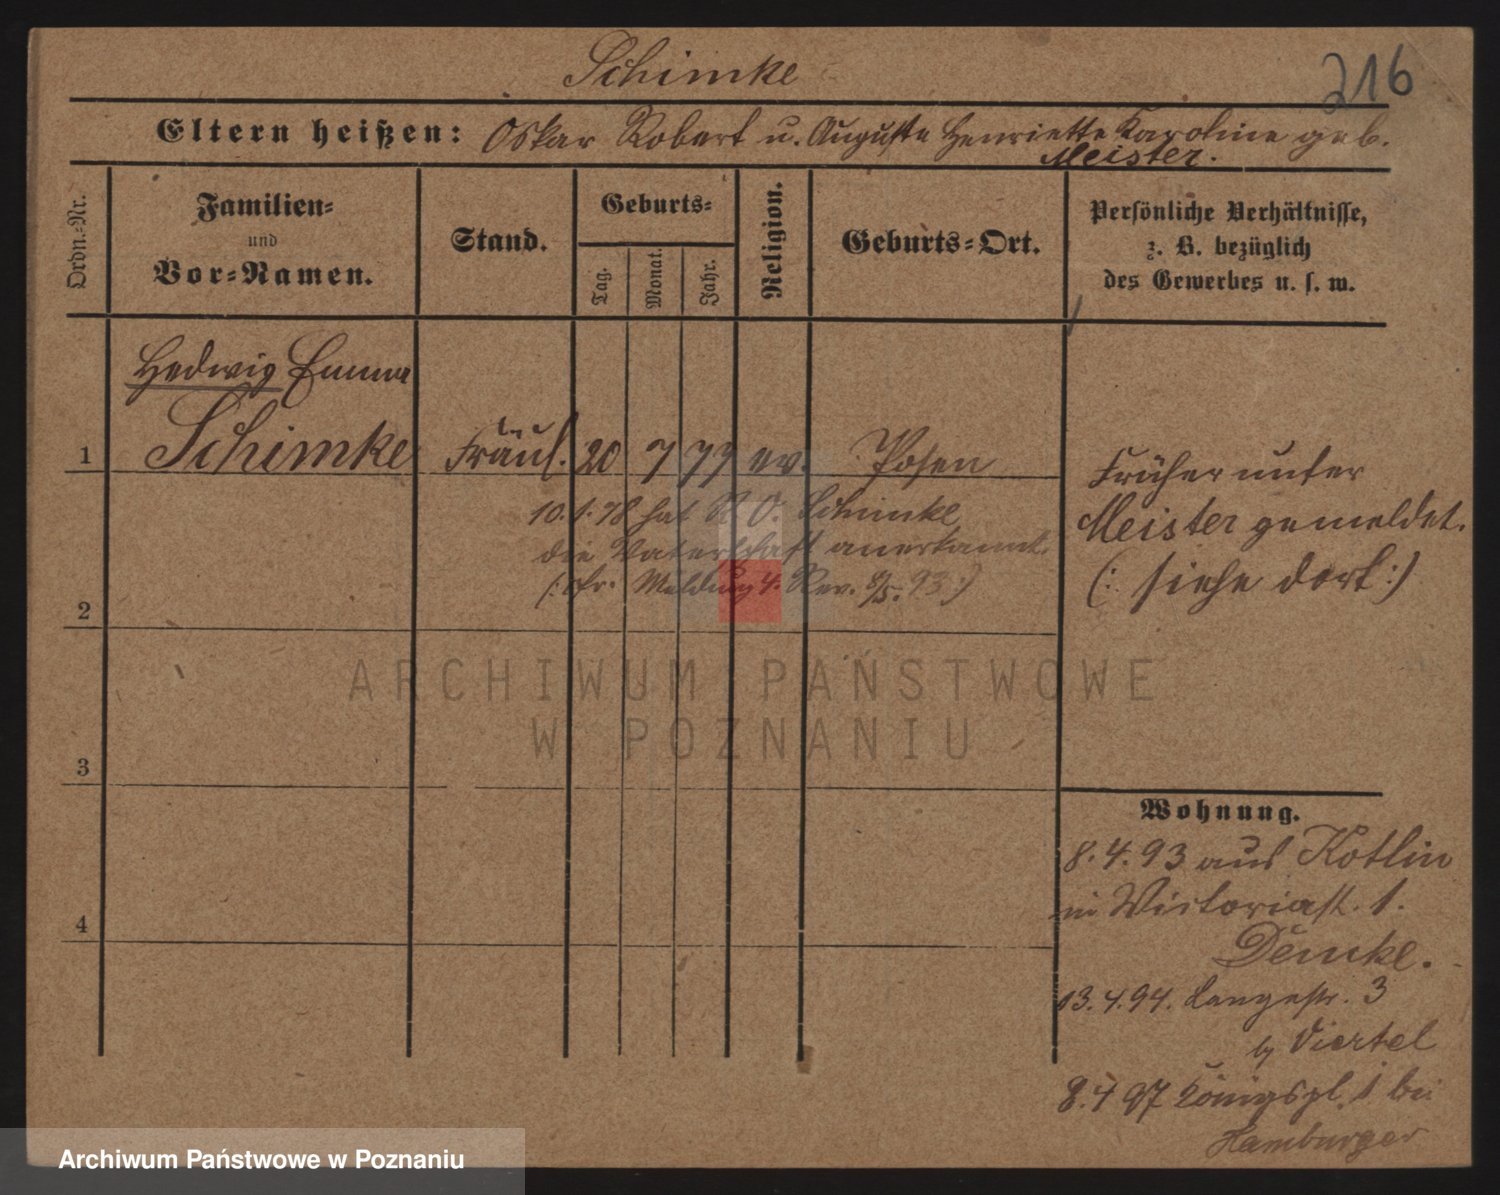 Schimke
216
Eltern heißen: Oskar Robert u. Auguste Henriette Karoline geb.
Meister.
Ordn.-Nr.
Familien-
und
Vor-Namen.
Stand.
Geburts-
Tag.
Monat.
Jahr.
Religion.
Geburts-Ort.
Persönliche Verhältnisse,
z. B. bezüglich
des Gewerbes u. s. w.
Hedwig Emma
1 Schimke Fräul. 20 7 77 ev. Posen
10.1.78 hat R. O. Schimke
die Vaterschaft anerkannt.
(: cfr. Meldung 4. Rev. 8/5. 93 :)
Früher unter
Meister gemeldet.
(: siehe dort :)
2
3
4
Wohnung.
8.4.93 aus Kotlin
in Victoriastr. 1.
Demke.
13.4.94. Langestr. 3
b/ Viertel
8.4 97 Königspl. 1 bei
Hamburger
ARCHIWUM PAŃSTWOWE
W POZNANIU
Archiwum Państwowe w Poznaniu